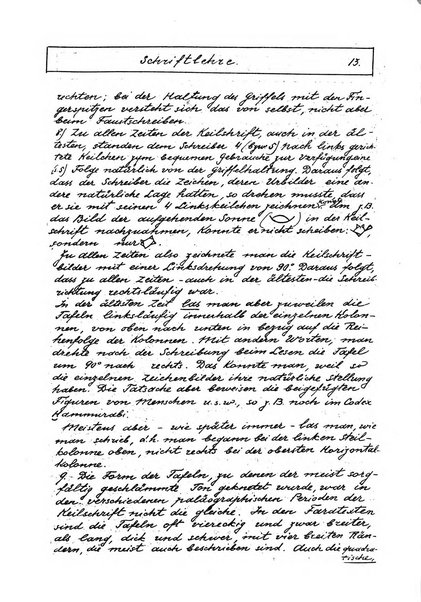 Schriftlehre. 13.
rechten; bei der Haltung des Griffels mit den Fin-
gerspitzen versteht sich das von selbst, nicht aber
beim Faustschreiben.
8) Zu allen Zeiten der Keilschrift, auch in der äl-
testen, standen dem Schreiber 4 (bzw 5) nach links gerich
tete Keilchen zum bequemen Gebrauche zur Verfügung
§5) Folge natürlich von der Griffelhaltung. Daraus folgt,
dass der Schreiber die Zeichen, deren Urbilder eine an-
dere natürliche Lage hatten, so drehen musste, dass
er sie mit seinen 4 Linkskeilchen zeichnen konnte. Um z.B.
das Bild der aufgehenden Sonne ( ) in der Keil-
schrift nachzuahmen, konnte er nicht schreiben:
sondern nur
Zu allen Zeiten also zeichnete man die Keilschrift-
bilder mit einer Linksdrehung von 90°. Daraus folgt,
das zu allen Zeiten - auch in der ältesten - die Schreib
richtung rechtsläufig war.
In der ältesten Zeit las man aber zuweilen die
Tafeln linksläufig innerhalb der einzelnen Kolon-
nen, von oben nach unten in bezug auf die Rei-
henfolge der Kolonnen. Mit andern Worten, man
drehte nach der Schreibung beim Lesen die Tafel
um 90° nach rechts. Das konnte man, weil so
die einzelnen Zeichenbilder ihre natürliche Stellung
haben. Die Tatsache aber beweisen die beigefügten
Figuren von Menschen u.s.w., so z.B. noch im Codex
Hammurabi.
Meistens aber - wie später immer - las man, wie
man schrieb, d.h. man begann bei der linken Steil-
kolonne oben, nicht rechts bei der obersten Horizontal-
kolonne.
9. Die Form der Tafeln, zu denen der meist sorg-
fältig geschlämmte Ton geknetet wurde, war in
den verschiedenen paläographischen Perioden der
Keilschrift nicht die gleiche. In den Faratexten
sind die Tafeln oft viereckig und zwar breiter,
als lang, dick und schwer, mit vier breiten Rän-
dern, die meist auch beschrieben sind. Auch die quadra-
tische,